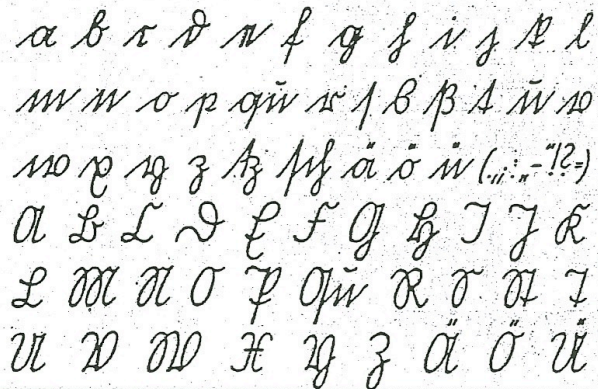 a b c d e f g h i j k l
m n o p qu r ſ s ß t u v
w x y z tz ſch ä ö ü (.,;:„-“!?=)
A B C D E F G H I J K
L M N O P Qu R S St T
U V W X Y Z Ä Ö Ü